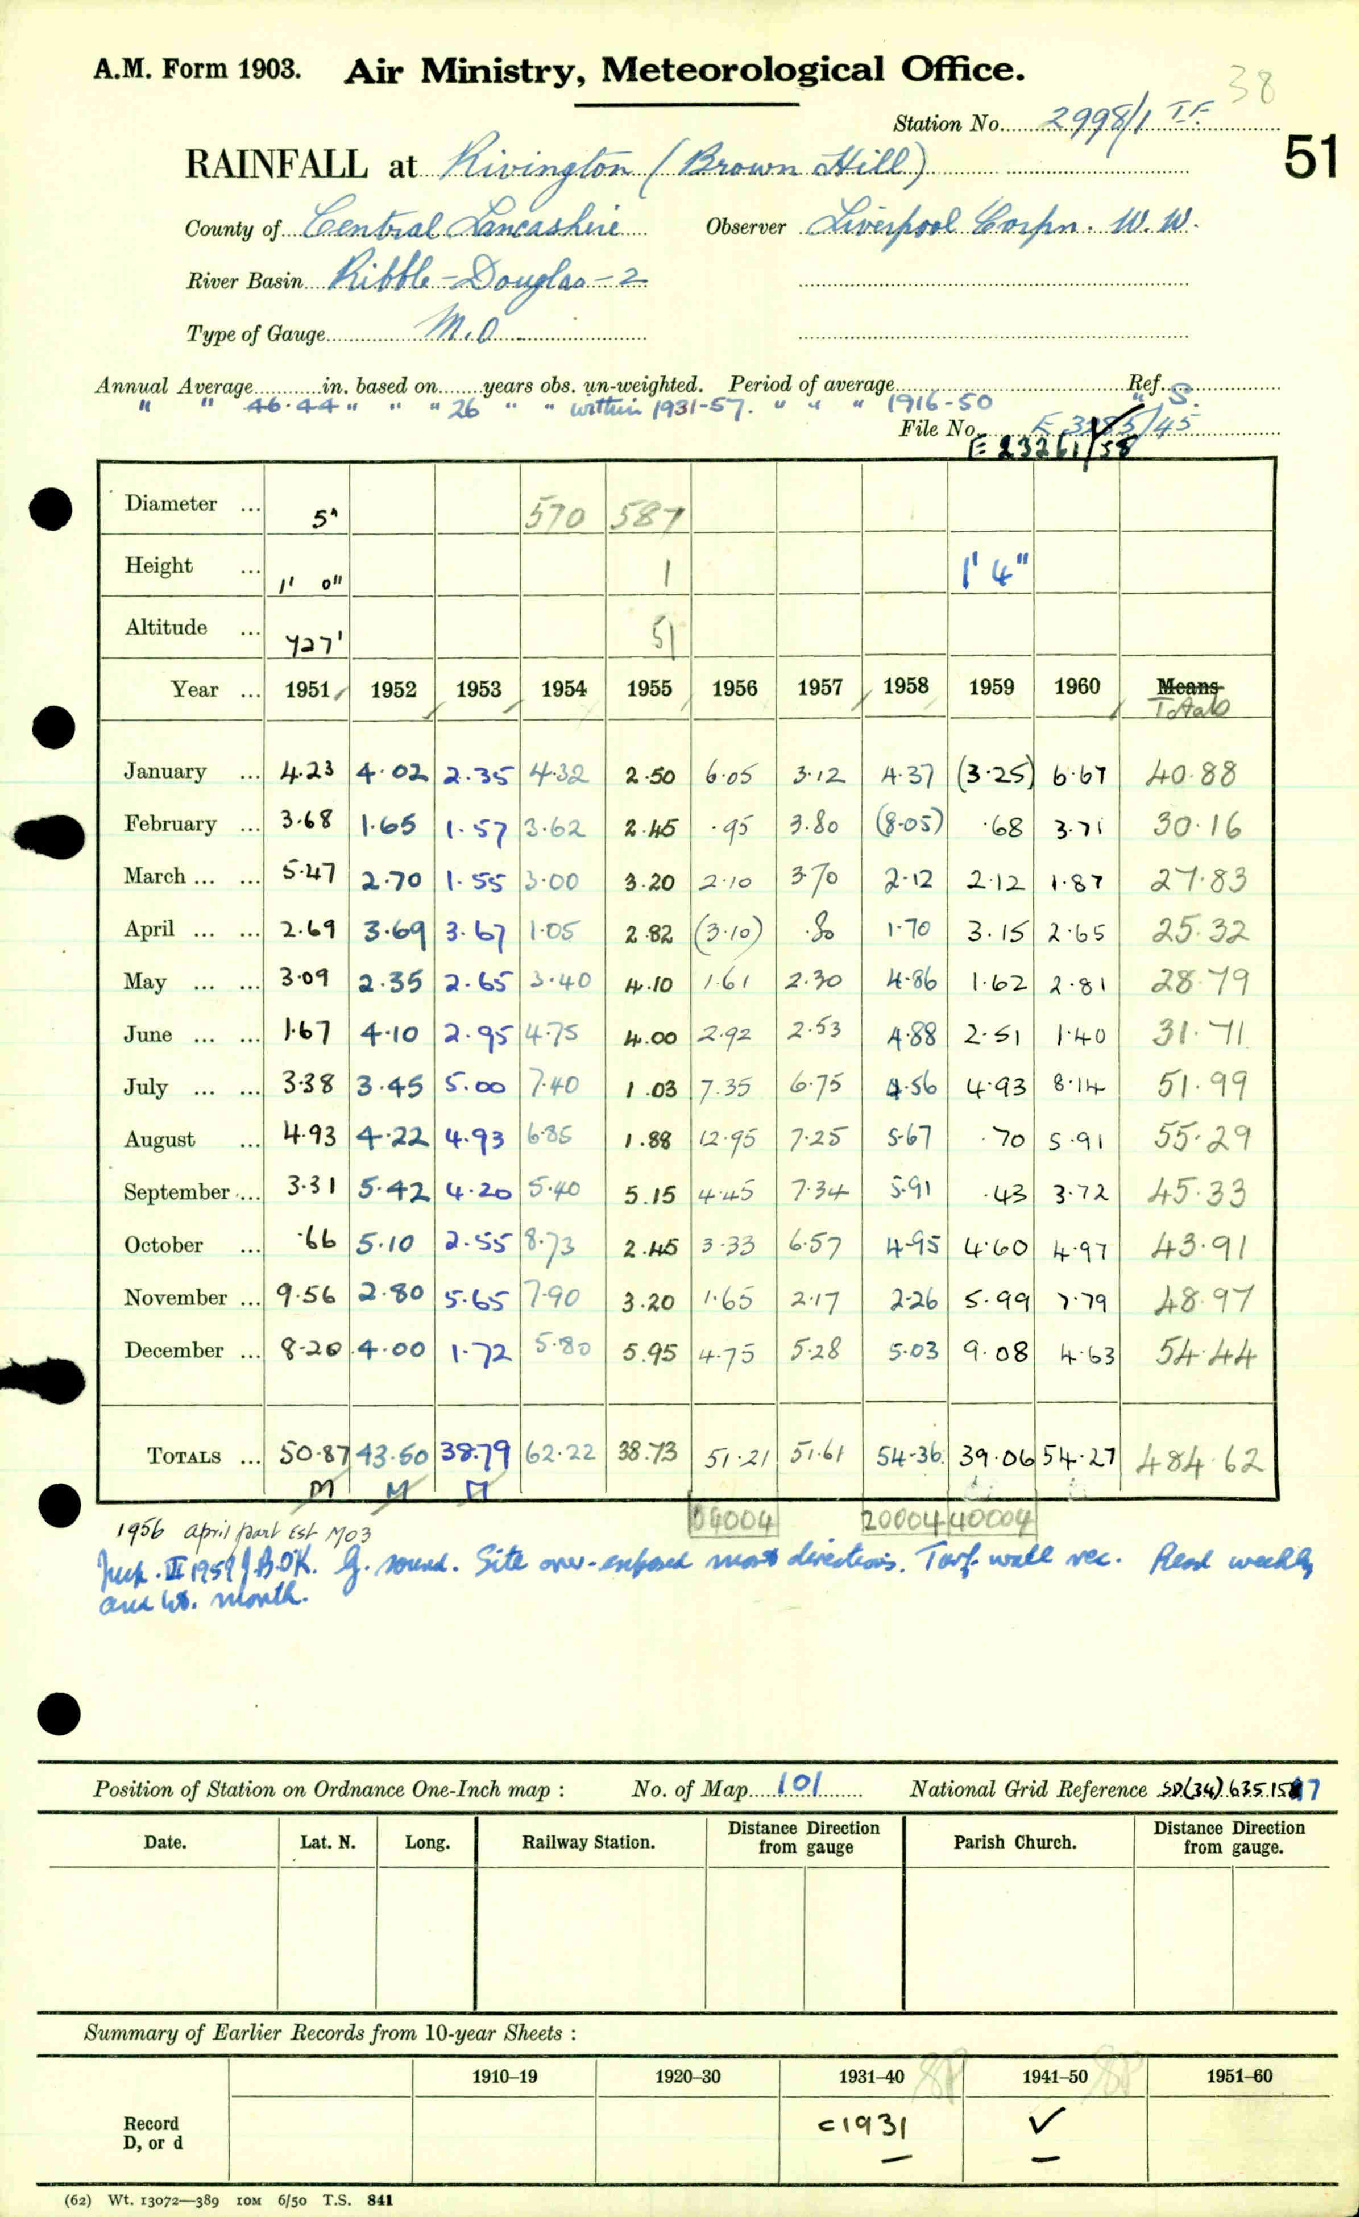 38
A.M. Form 1903. Air Ministry, Meteorological Office.
Station No. 2998/1 T.F.
51
RAINFALL at Rivington (Brown Hill)
County of Central Lancashire Observer Liverpool Corpn. W.W.
River Basin Ribble-Douglas-2
Type of Gauge M.O
Annual Average in. based on years obs. un-weighted. Period of average Ref.
" " 46.44 " " " 26 " " within 1931-57. " " " 1916-50 " S.
File No. E 3285/45
E 23261/58
Diameter ... 5" 570 587
Height ... 1' 0" 1 1' 4"
Altitude ... 727' 51
Year ... 1951 1952 1953 1954 1955 1956 1957 1958 1959 1960 Means
Totals
January ... 4.23 4.02 2.35 4.32 2.50 6.05 3.12 4.37 (3.25) 6.67 40.88
February ... 3.68 1.65 1.57 3.62 2.45 .95 3.80 (8.05) .68 3.71 30.16
March ... ... 5.47 2.70 1.55 3.00 3.20 2.10 3.70 2.12 2.12 1.87 27.83
April ... ... 2.69 3.69 3.67 1.05 2.82 (3.10) .80 1.70 3.15 2.65 25.32
May ... ... 3.09 2.35 2.65 3.40 4.10 1.61 2.30 4.86 1.62 2.81 28.79
June ... ... 1.67 4.10 2.95 4.75 4.00 2.92 2.53 4.88 2.51 1.40 31.71
July ... ... 3.38 3.45 5.00 7.40 1.03 7.35 6.75 4.56 4.93 8.14 51.99
August ... 4.93 4.22 4.93 6.85 1.88 12.95 7.25 5.67 .70 5.91 55.29
September ... 3.31 5.42 4.20 5.40 5.15 4.45 7.34 5.91 .43 3.72 45.33
October ... .66 5.10 2.55 8.73 2.45 3.33 6.57 4.95 4.60 4.97 43.91
November ... 9.56 2.80 5.65 7.90 3.20 1.65 2.17 2.26 5.99 7.79 48.97
December ... 8.20 4.00 1.72 5.80 5.95 4.75 5.28 5.03 9.08 4.63 54.44
TOTALS ... 50.87 43.50 38.79 62.22 38.73 51.21 51.61 54.36 39.06 54.27 484.62
M M M
04004 20004 40004
1956 april part Est MO3
Insp. III 1959 J.B. OK. G. sound. Site over-exposed most directions. Turf wall rec. Read weekly
and 1st. month.
Position of Station on Ordnance One-Inch map : No. of Map 101 National Grid Reference SD(34)635 15 17
Date. Lat. N. Long. Railway Station. Distance from Direction gauge Parish Church. Distance from Direction gauge.
Summary of Earlier Records from 10-year Sheets :
1910–19 1920–30 1931–40 1941–50 1951–60
Record D, or d c1931 – ✓ –
(62) Wt. 13072—389 10M 6/50 T.S. 841